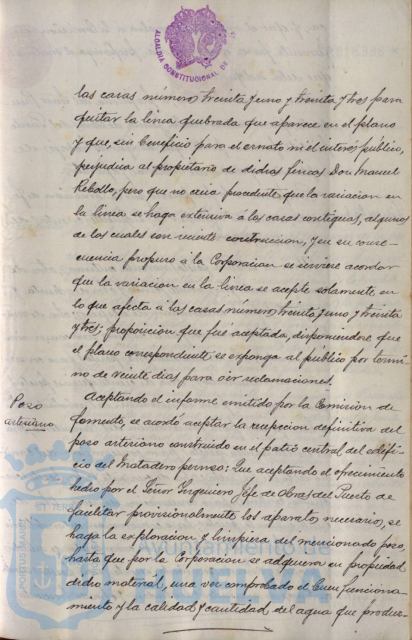 ALCALDIA CONSTITUCIONAL DE
las casas número treinta y uno y treinta y tres para
quitar la linea quebrada que aparece en el plano
y que, sin beneficio para el ornato ni el interés público,
perjudica al propietario de dichas fincas Don Manuel
Rebollo, pero que no creia procedente que la variacion en
la linea se haga extensiva á las casas contiguas, algunas
de las cuales son reciente construccion, y en su conse-
cuencia propuso á la Corporacion se sirviese acordar
que la variacion en la linea se acepte solamente en
lo que afecta á las casas número treinta y uno y treinta
y tres; proposicion que fué aceptada, disponiendose que
el plano correspondiente se exponga al público por térmi-
no de veinte dias para oir reclamaciones.
Pozo
artesiano
Aceptando el informe emitido por la Comision de
Fomento, se acordó aceptar la recepcion definitiva del
pozo artesiano construido en el patio central del edifi-
cio del Matadero Que aceptando el ofrecimiento
hecho por el Señor Ingeniero Jefe de Obras del Puerto de
facilitar provisionalmente los aparatos necesarios, se
haga la exploracion y limpieza del mencionado pozo,
hasta que por la Corporacion se adquiera en propiedad
dicho material, una vez comprobado el buen funciona-
miento y la calidad y cantidad del agua que produz-
Ayuntamiento de
HUELVA